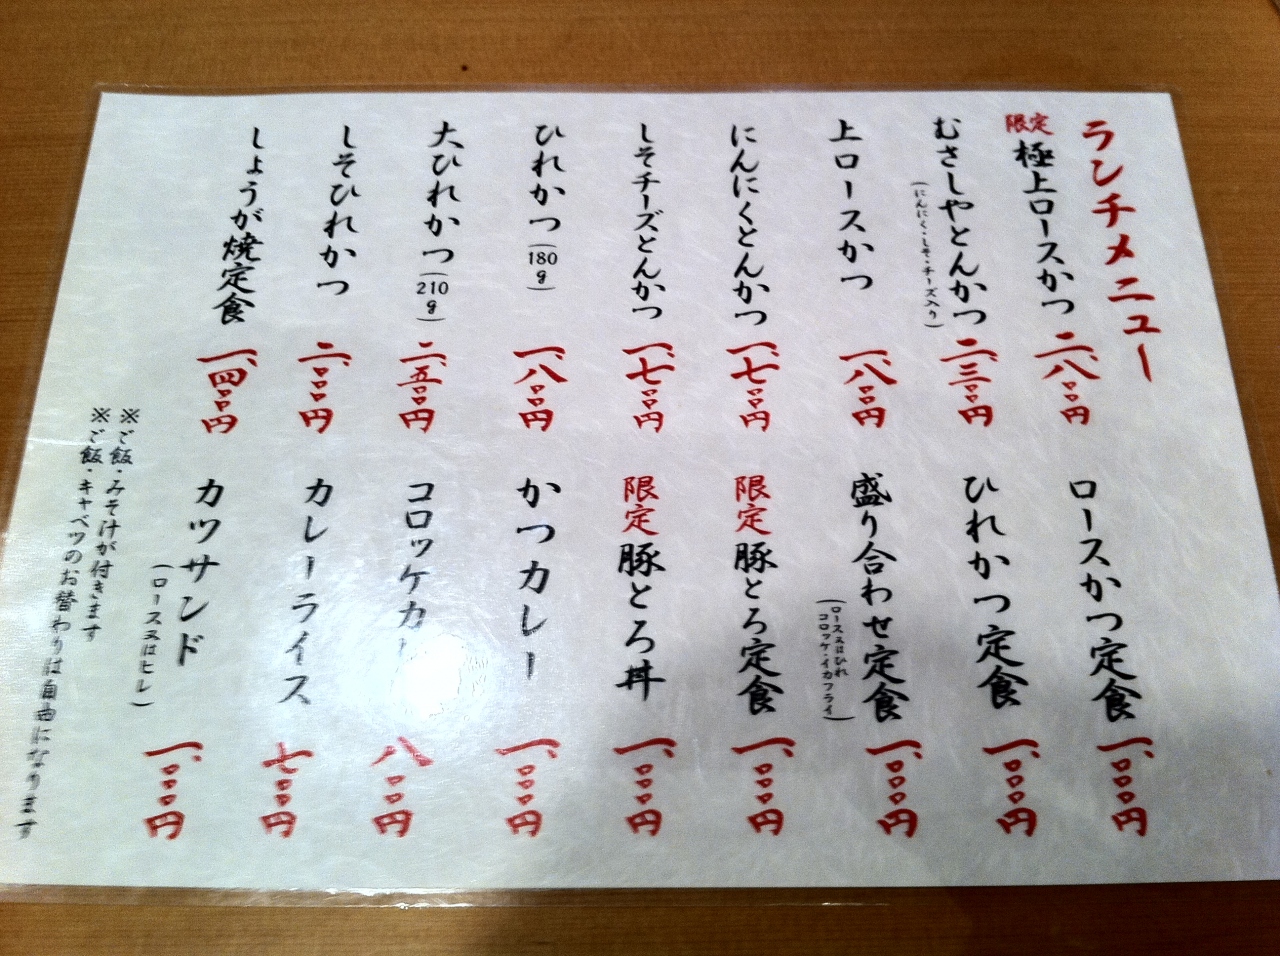 ランチメニュー
限定 極上ロースかつ 二、八〇〇円
むさしやとんかつ 二、三〇〇円
(にんにく・しそ・チーズ入り)
上ロースかつ 一、八〇〇円
にんにくとんかつ 一、七〇〇円
しそチーズとんかつ 一、七〇〇円
ひれかつ(180g) 一、八〇〇円
大ひれかつ(210g) 二、五〇〇円
しそひれかつ 二、〇〇〇円
しょうが焼定食 一、四〇〇円
ロースかつ定食 一、〇〇〇円
ひれかつ定食 一、〇〇〇円
盛り合わせ定食 一、〇〇〇円
(ロース又はひれ
コロッケ・イカフライ)
限定 豚とろ定食 一、〇〇〇円
限定 豚とろ丼 一、〇〇〇円
かつカレー 一、〇〇〇円
コロッケカ 八〇〇円
カレーライス 七〇〇円
カツサンド 一、〇〇〇円
(ロース又はヒレ)
※ご飯・みそ汁が付きます
※ご飯・キャベツのお替わりは自由になります